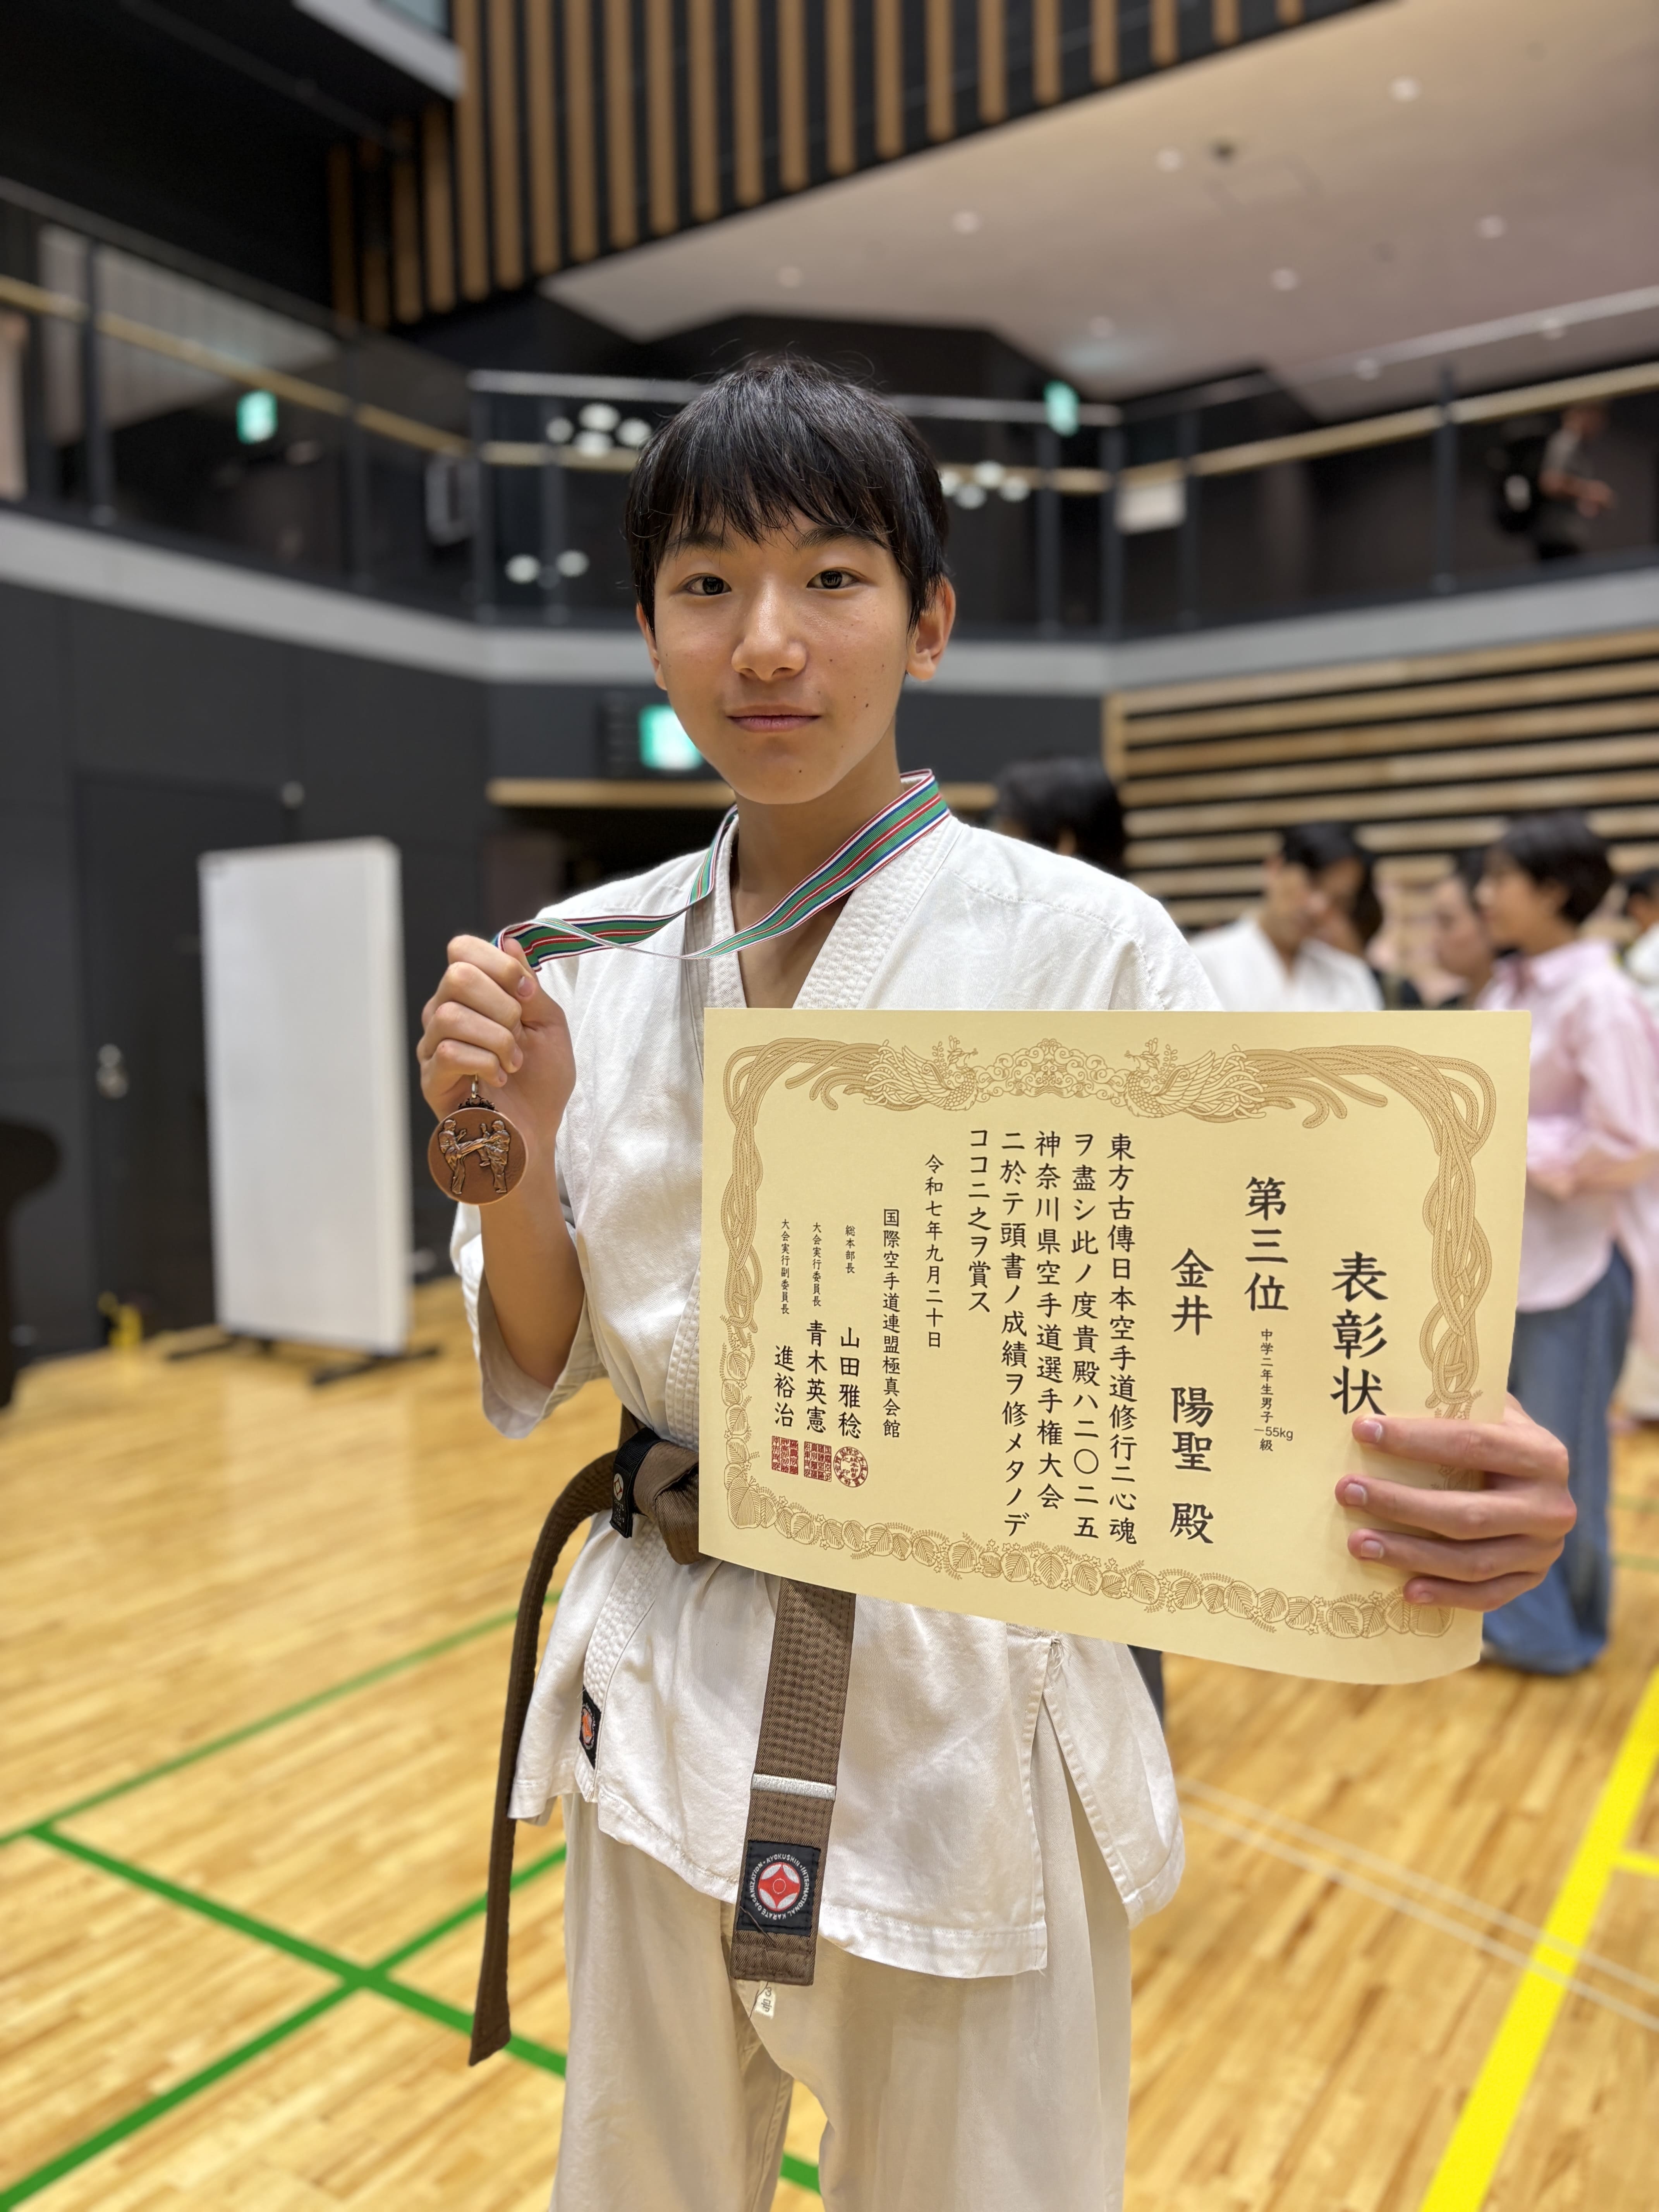 表彰状
第三位
中学二年生男子
-55kg
級
金井 陽聖 殿
東方古傳日本空手道修行ニ心魂
ヲ盡シ此ノ度貴殿ハ二〇二五
神奈川県空手道選手権大会
ニ於テ頭書ノ成績ヲ修メタノデ
ココニ之ヲ賞ス
令和七年九月二十日
国際空手道連盟極真会館
総本部長 山田雅稔
大会実行委員長 青木英憲
大会実行副委員長 進裕治
KYOKUSHIN INTERNATIONAL KARATE ORGANIZATION